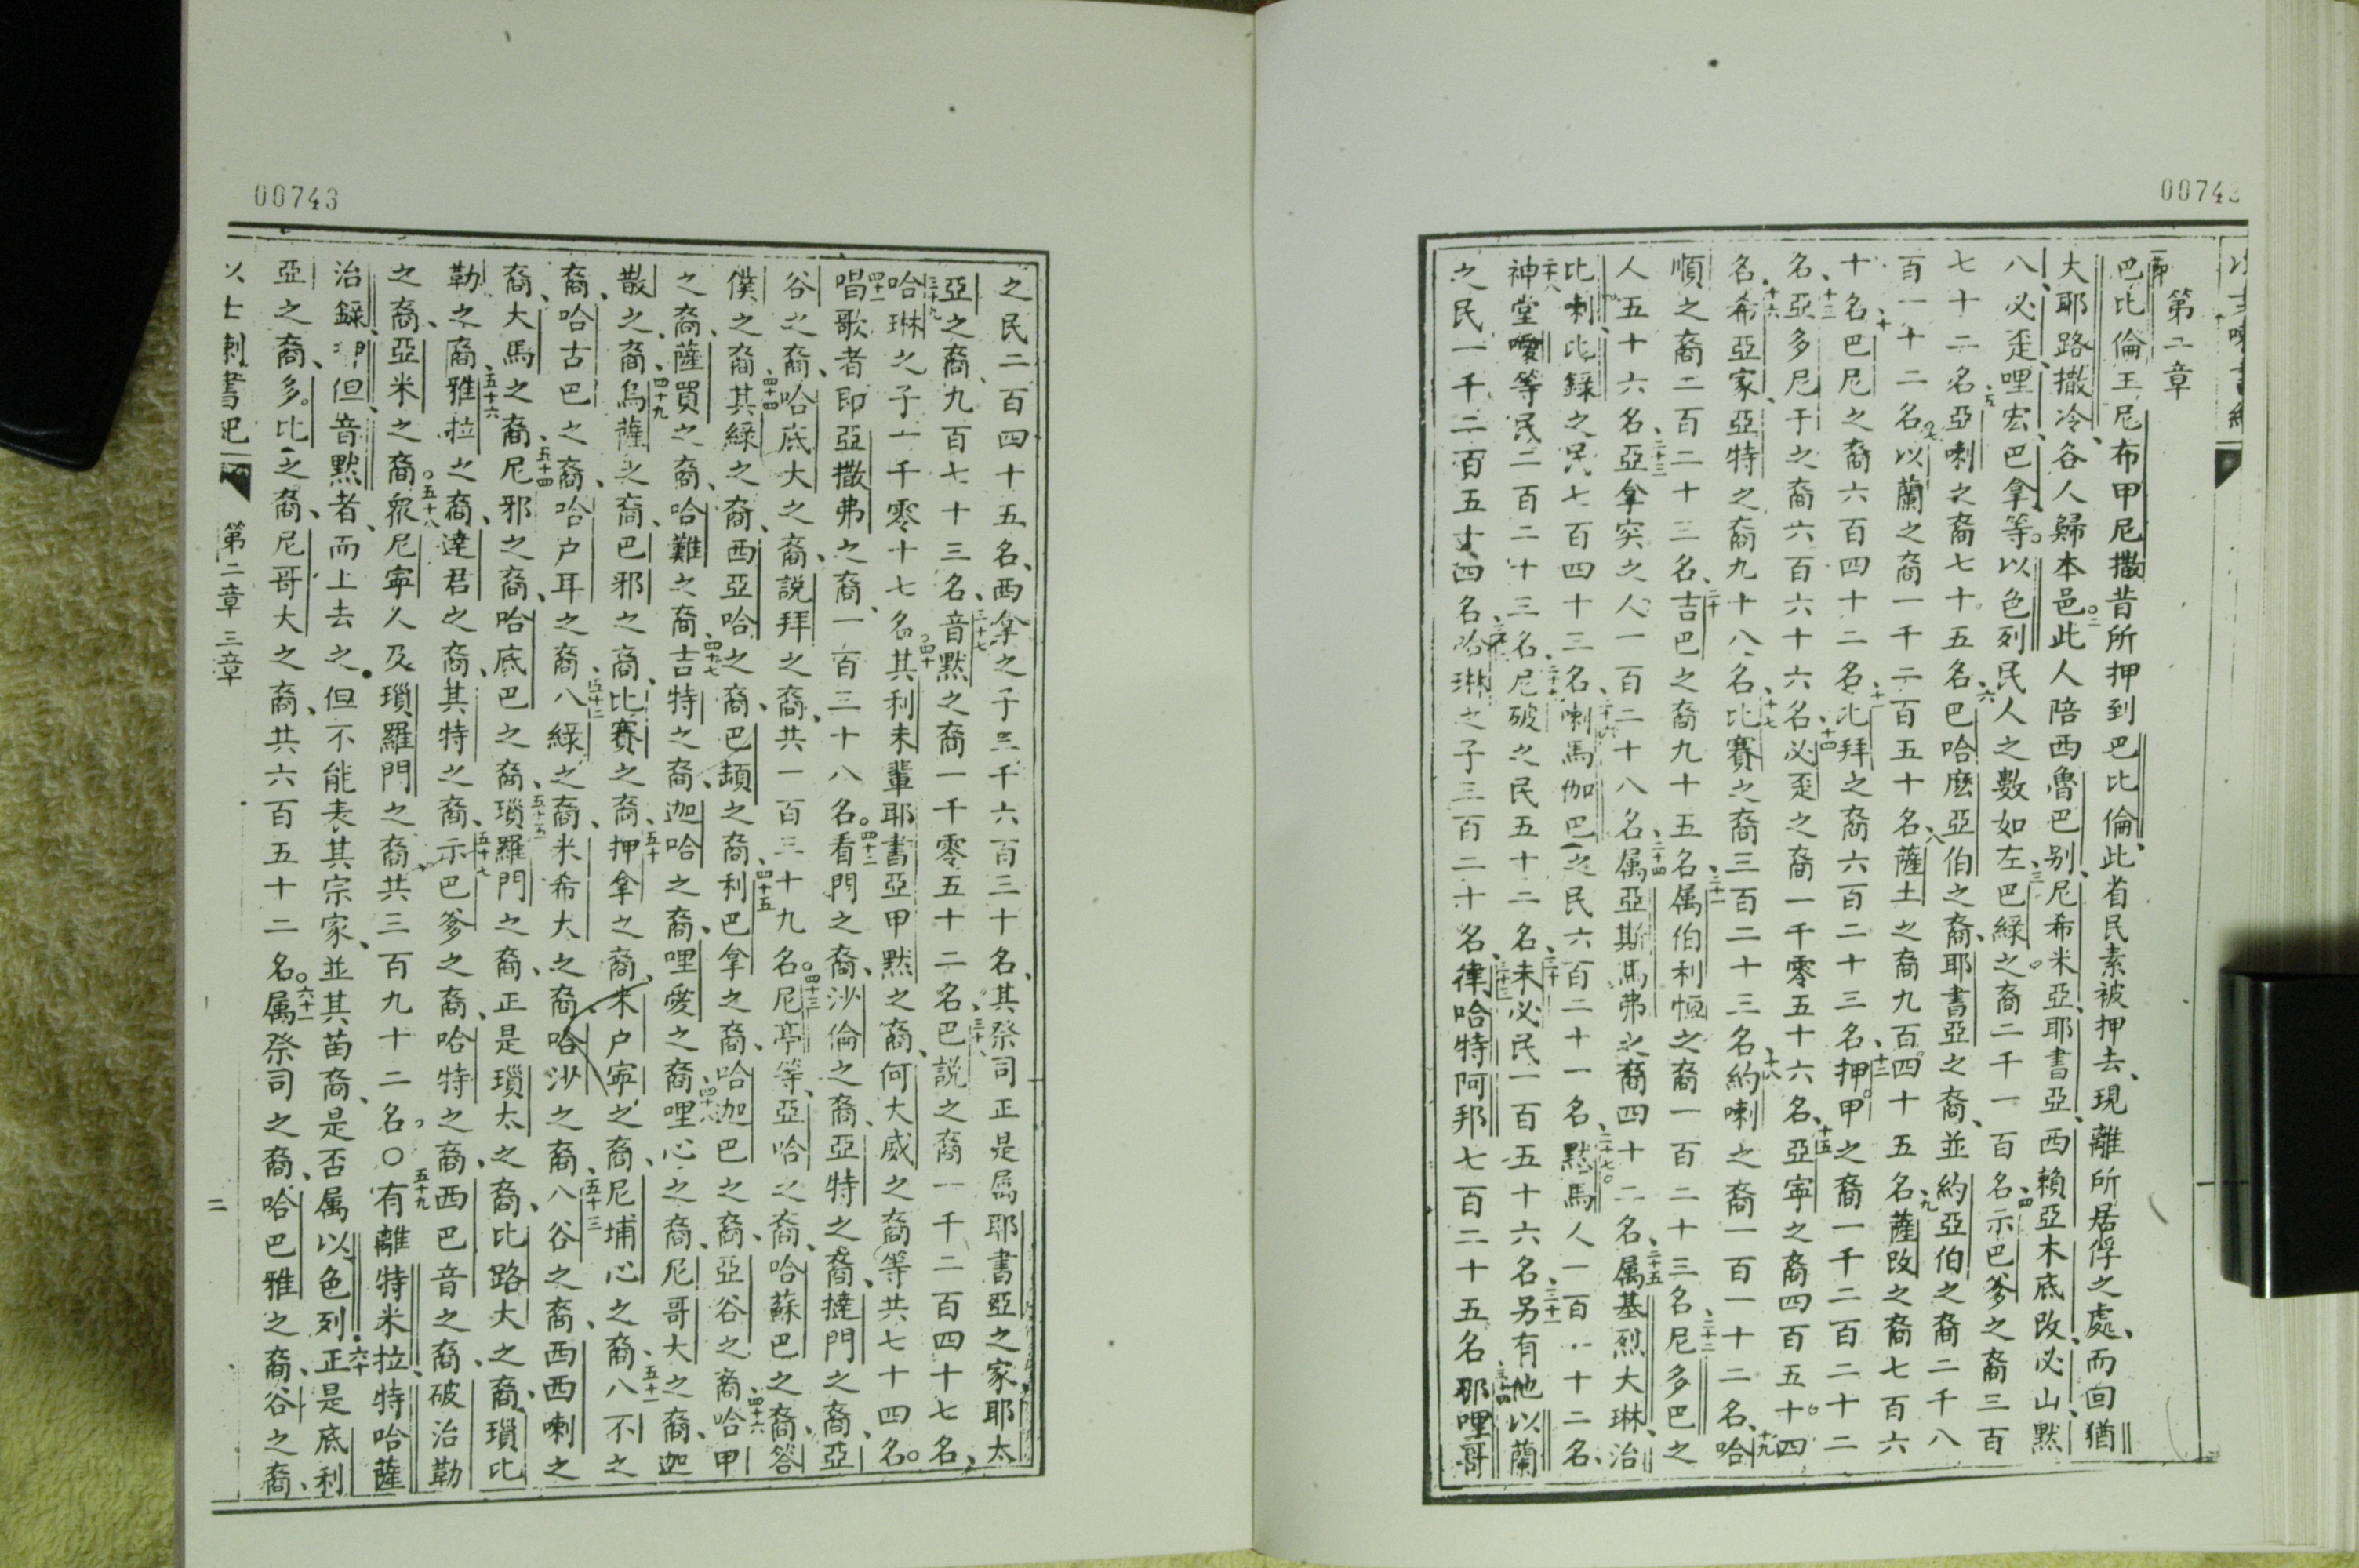 00743
第二章
巴比倫王尼布甲尼撒昔所押到巴比倫、此省民素被押去、現離所居俘之處、而回猶
大耶路撒冷、各人歸本邑、二此人陪西魯巴别、尼希米亞、耶書亞、西賴亞、木底改、必山、默
八、必歪、哩宏、巴拿等。以色列民人之數如左、三巴綠之裔二千一百名、四示巴爹之裔三百
七十二名、五亞喇之裔七十五名、六巴哈麽亞伯之裔、耶書亞之裔、並約亞伯之裔二千八
百一十二名、七以蘭之裔一千二百五十名、八薩土之裔九百四十五名、九薩改之裔七百六
十名、十巴尼之裔六百四十二名、十一比拜之裔六百二十三名、十二押甲之裔一千二百二十二
名、十三亞多尼干之裔六百六十六名、十四必歪之裔一千零五十六名、十五亞寧之裔四百五十四
名、十六希亞家、亞特之裔九十八名、十七比賽之裔三百二十三名、十八約喇之裔一百一十二名、十九哈
順之裔二百二十三名、二十吉巴之裔九十五名、二十一属伯利恒之裔一百二十三名、二十二尼多巴之
人五十六名、二十三亞拿突之人一百二十八名、二十四属亞斯馬弗之裔四十二名、二十五属基烈大琳、治
比喇、比錄之民七百四十三名、二十六喇馬、伽巴之民六百二十一名、二十七默馬人一百二十二名、
二十八神堂、噯等民二百二十三名、二十九尼破之民五十二名、三十末必民一百五十六名、三十一另有他以蘭
之民一千二百五十四名、三十二哈琳之子三百二十名、三十三律、哈特、阿邦七百二十五名、三十四耶哩哥
00743
之民二百四十五名、西拿之子三千六百三十名、其祭司正是属耶書亞之家、耶太
亞之裔、九百七十三名、三十七音默之裔一千零五十二名、三十八巴説之裔一千二百四十七名、
三十九哈琳之子一千零十七名、四十其利未輩耶書亞甲默之裔、何大威之裔等共七十四名。
四十一唱歌者即亞撒弗之裔、一百三十八名。四十二看門之裔、沙倫之裔、亞特之裔、撻門之裔、亞
谷之裔、哈底大之裔、説拜之裔、共一百三十九名。四十三尼亭等、亞哈之裔、哈蘇巴之裔、答
僕之裔、四十四其綠之裔、西亞哈之裔、巴頓之裔、四十五利巴拿之裔、哈迦巴之裔、亞谷之裔、四十六哈甲
之裔、薩買之裔、哈難之裔、四十七吉特之裔、迦哈之裔、哩愛之裔、四十八哩心之裔、尼哥大之裔、迦
散之裔、四十九烏薩之裔、巴邪之裔、比賽之裔、五十押拿之裔、米户寧之裔、尼埔心之裔、五十一八不之
裔、哈古巴之裔、哈户耳之裔、五十二八綠之裔、米希大之裔、哈沙之裔、五十三八谷之裔、西西喇之
裔、大馬之裔、五十四尼邪之裔、哈底巴之裔、五十五瑣羅門之裔、正是瑣太之裔、比路大之裔、瑣比
勒之裔、五十六雅拉之裔、達君之裔、其特之裔、五十七示巴爹之裔、哈特之裔、西巴音之裔、破治勒
之裔、亞米之裔。五十八衆尼寧人及瑣羅門之裔、共三百九十二名。〇五十九有離特米拉、特哈薩、
治錄、押但、音默者、而上去之、但不能表其宗家、並其苗裔、是否属以色列。六十正是底利
亞之裔、多比之裔、尼哥大之裔、共六百五十二名。六十一属祭司之裔、哈巴雅之裔、谷之裔、
以士喇書紀 第二章 三章 二